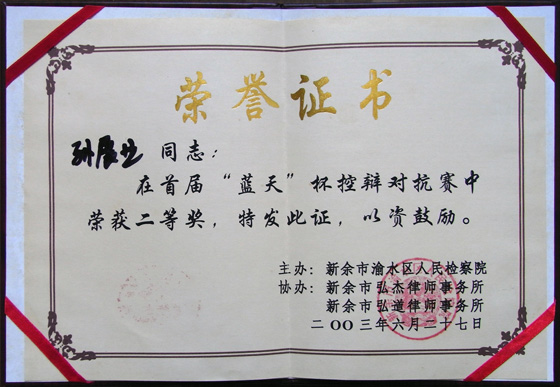 荣誉证书
孙展生 同志：
在首届“蓝天”杯控辩对抗赛中
荣获二等奖，特发此证，以资鼓励。
主办：新余市渝水区人民检察院
协办：新余市弘杰律师事务所
新余市弘道律师事务所
二〇〇三年六月二十七日